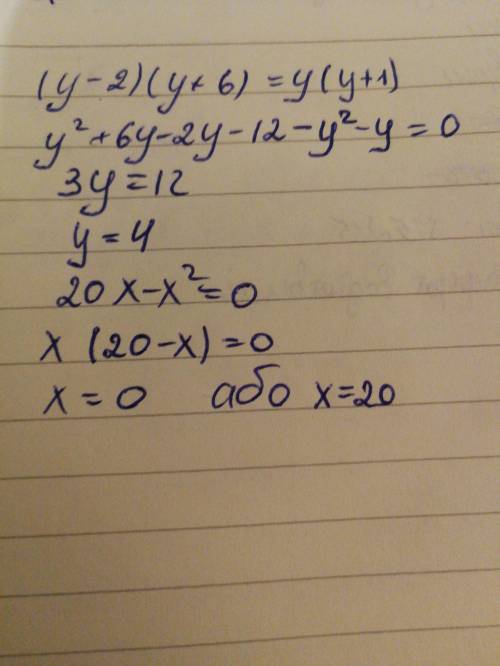 (y-2)(y+6)=y(y+1)
y²+6y-2y-12-y²-y=0
3y=12
y=4
20x-x²=0
x(20-x)=0
x=0 або x=20